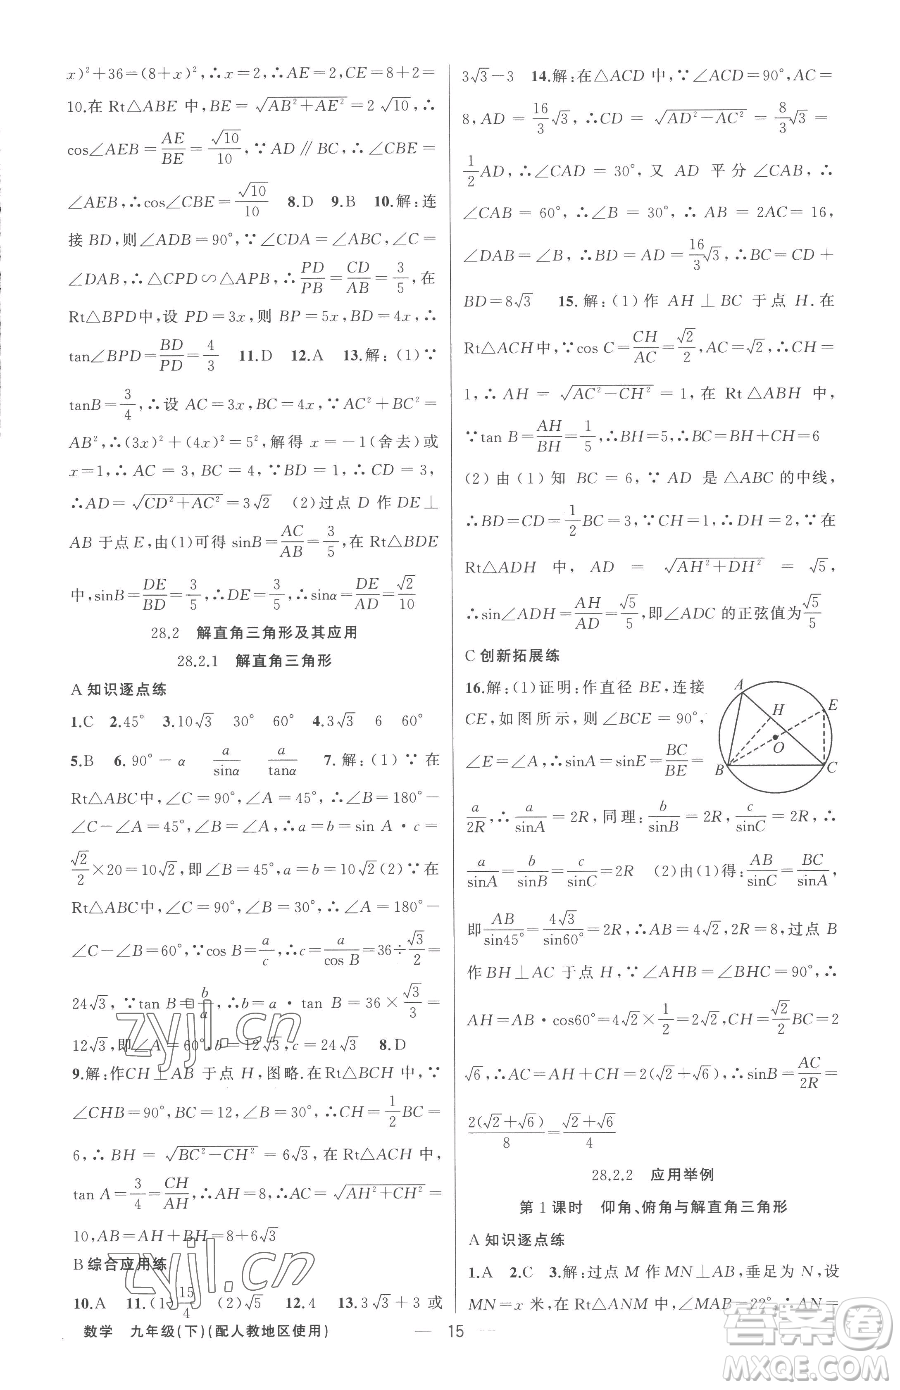 x)²+36=(8+x)²,∴x=2,∴AE=2,CE=8+2=
10.在 Rt△ABE 中,BE=√(AB²+AE²)=2√10,∴
cos∠AEB=AE/BE=√10/10,∵AD∥BC,∴∠CBE=
∠AEB,∴cos∠CBE=√10/10 8.D 9.B 10.解:连
接 BD,则∠ADB=90°,∵∠CDA=∠ABC,∠C=
∠DAB,∴△CPD∽△APB,∴PD/PB=CD/AB=3/5,在
Rt△BPD中,设 PD=3x,则 BP=5x,BD=4x,∴
tan∠BPD=BD/PD=4/3 11.D 12.A 13.解:(1)∵
tanB=3/4,∴设 AC=3x,BC=4x,∵AC²+BC²=
AB²,∴(3x)²+(4x)²=5²,解得 x=-1(舍去)或
x=1,∴AC=3,BC=4,∵BD=1,∴CD=3,
∴AD=√(CD²+AC²)=3√2 (2)过点 D 作 DE⊥
AB 于点 E,由(1)可得 sinB=AC/AB=3/5,在Rt△BDE
中,sinB=DE/BD=3/5,∴DE=3/5,∴sinα=DE/AD=√2/10
28.2 解直角三角形及其应用
28.2.1 解直角三角形
A 知识逐点练
1.C 2.45° 3.10√3 30° 60° 4.3√3 6 60°
5.B 6.90°-α a/sinα a/tanα 7.解:(1)∵在
Rt△ABC中,∠C=90°,∠A=45°,∴∠B=180°-
∠C-∠A=45°,∴∠B=∠A,∴a=b=sin A·c=
√2/2×20=10√2,即∠B=45°,a=b=10√2(2)∵在
Rt△ABC中,∠C=90°,∠A=30°,∴∠B=180°-
∠C-∠B=60°,∵cos B=a/c,∴c=a/cos B=36÷√3/2=
24√3,∵tan B=b/a,∴b=a·tan B=36×√3/3=
12√3,即∠A=60°,b=12√3,c=24√3 8.D
9.解:作CH⊥AB于点H,图略.在Rt△BCH中,∵
∠CHB=90°,BC=12,∠B=30°,∴CH=1/2BC=
6,∴BH=√(BC²-CH²)=6√3,在Rt△ACH中,∵
tan A=3/4=CH/AH,∴AH=8,∴AC=√(AH²+CH²)=
10,AB=AH+BH=8+6√3
B 综合应用练
10.A 11.(1)15/4 (2)√5 12.4 13.3√3+3或
3√3-3 14.解:在△ACD 中,∵∠C=90°,AC=
8,AD=16/3√3,∴CD=√(AD²-AC²)=8/3√3=
1/2AD,∴∠CAD=30°,又 AD 平分∠CAB,∴
∠CAB=60°,∴∠B=30°,∴AB=2AC=16,
∠DAB=∠B,∴BD=AD=16/3√3,∴BC=CD+
BD=8√3 15.解:(1)作 AH⊥BC 于点 H.在
Rt△ACH中,∵cos C=CH/AC=√2/2,AC=√2,∴CH=
1,∴AH=√(AC²-CH²)=1,在 Rt△ABH 中,
∵tan B=AH/BH=1/5,∴BH=5,∴BC=CH+BH=6
(2)由(1)知 BC=6,∵AD 是△ABC的中线,
∴BD=CD=1/2BC=3,∵CH=1,∴DH=2,∵在
Rt△ADH 中,AD=√(AH²+DH²)=√5,
∴sin∠ADH=AH/AD=√5/5,即∠ADC的正弦值为√5/5
C 创新拓展练
16.解:(1)证明:作直径BE,连接
CE,如图所示,则∠BCE=90°,
∠E=∠A,∴sinA=sinE=BC/BE=
a/2R,∴a/sinA=2R,同理:b/sinB=2R,c/sinC=2R,∴
a/sinA=b/sinB=c/sinC=2R (2)由(1)得:AB/sinC=BC/sinA,
即AB/sin45°=4√3/sin60°=2R,∴AB=4√2,2R=8,过点 B
作BH⊥AC于点H,∵∠AHB=∠BHC=90°,∴
AH=AB·cos60°=4√2×1/2=2√2,CH=√2/2BC=2
√6,∴AC=AH+CH=2(√2+√6),∴sinB=AC/2R=
2(√2+√6)/8=(√2+√6)/4
A
H
E
O
B
C
28.2.2 应用举例
第1课时 仰角、俯角与解直角三角形
A 知识逐点练
1.A 2.C 3.解:过点 M 作 MN⊥AB,垂足为 N,设
MN=x 米,在 Rt△ANM 中,∠AMN=22°,∴
数学 九年级(下)(配人教地区使用) — 15 —
zyjl.cn
zyjl.cn
答案圈
MXQE.COM